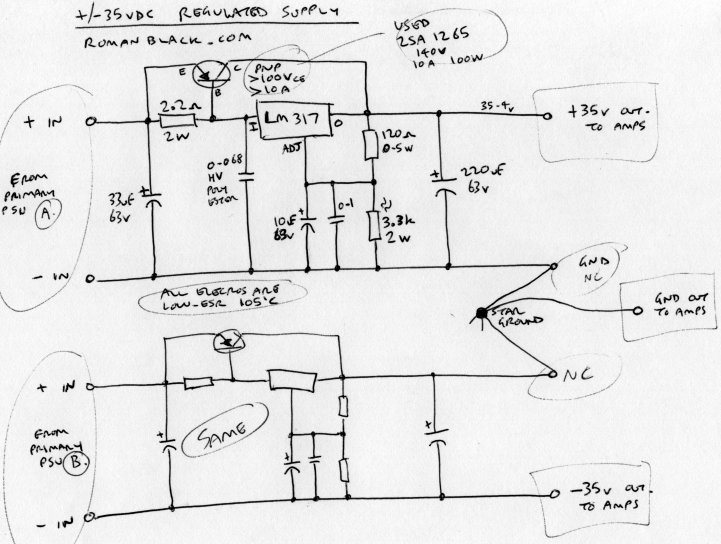 +/-35VDC REGULATED SUPPLY
ROMANBLACK.COM
USED
2SA1265
140V
10A 100W
E
C
B
PNP
>100VCE
>10A
+ IN
2.2Ω
2W
I
LM317
O
ADJ
120Ω
0.5W
35.4V
+35V OUT
TO AMPS
FROM
PRIMARY
PSU A.
33uF
63V
+
0.068
HV
POLY
ESTER
+
10uF
63V
0.1
3.3k
2W
+
220uF
63V
- IN
ALL ELECROS ARE
LOW-ESR 105°C
GND
NC
STAR
GROUND
GND OUT
TO AMPS
+ IN
NC
FROM
PRIMARY
PSU B.
+
SAME
+
+
- IN
-35V OUT.
TO AMPS